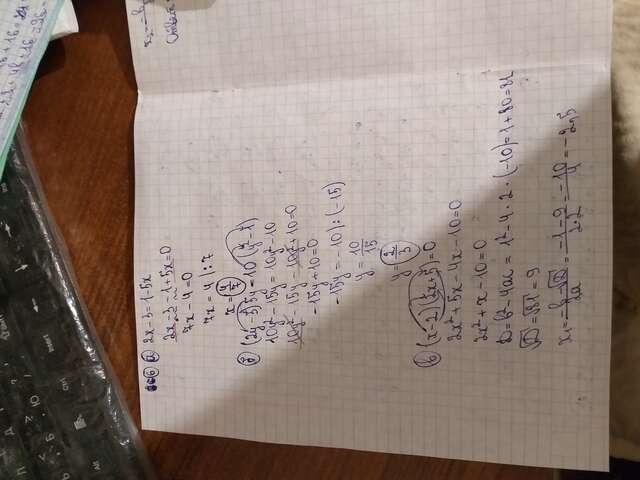 6 а) 2x-3=1-5x
2x-3-1+5x=0
7x-4=0
7x=4 |:7
x=4/7
б) (2y-3)5y=10(y²-1)
10y²-15y=10y²-10
10y²-15y-10y²+10=0
-15y+10=0
-15y=-10 |:(-15)
y=10/15
y=2/3
в) (x-2)(2x+5)=0
2x²+5x-4x-10=0
2x²+x-10=0
D=b²-4ac=1²-4·2·(-10)=1+80=81
√D=√81=9
x₁=-b-√D/2a=-1-9/2·2=-10/4=-2,5
Ответ
Alt
Ctrl
Insert